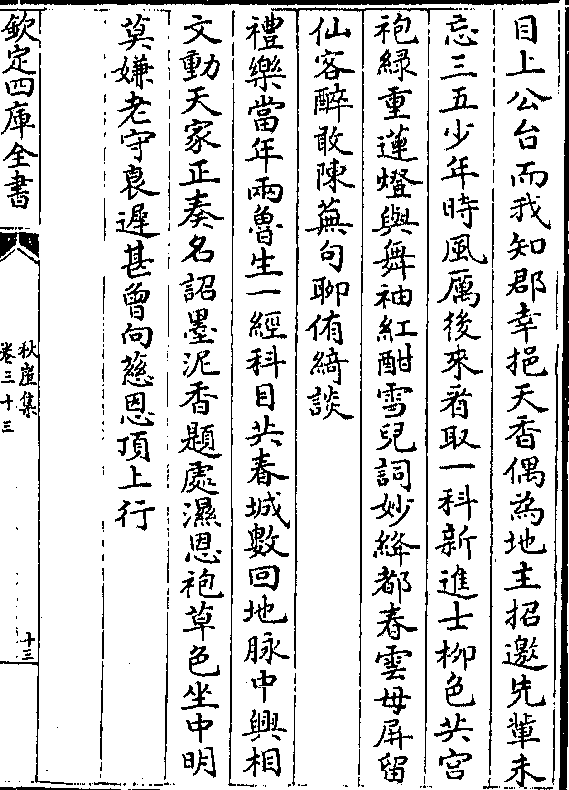 目上公台而我知郡幸挹天香偶為地主招邀先輩未
忘三五少年時風厲後來看取一科新進士柳色共宮
袍緑重蓮燈與舞袖紅酣雪兒詞妙絳都春雲母屏留
仙客醉敢陳蕪句聊侑綺談
禮樂當年兩魯生一經科目共春城數回地脉中興相
文動天家正奏名詔墨泥香題處濕恩袍草色坐中明
莫嫌老守衰遲甚曾向慈恩頂上行
欽定四庫全書
秋崖集
卷三十三
十三